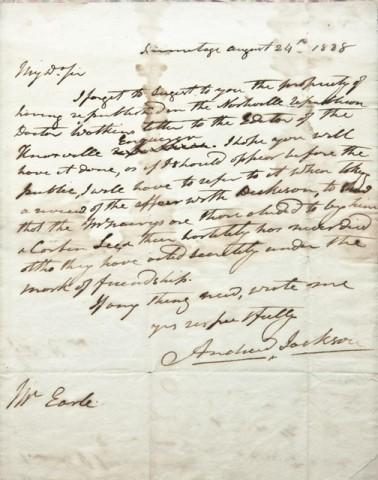 Hermitage august 24th 1828
My Dr Sir
I forgot to sugest to you the propriety of
having republished in the Nashville republican
Doctor Watkins letter to the Editor of the
Knoxville Enquirer. I hope you will
have it done, as if I should appear before the
public, I will have to refer to it when
a of the affair with Dickeson, to
that the are
a their hostility has never died
altho they have acted secretely under the
mask of friendship.
If any thing new, wrote me
yrs respectfully
Andrew Jackson
Mr Earle